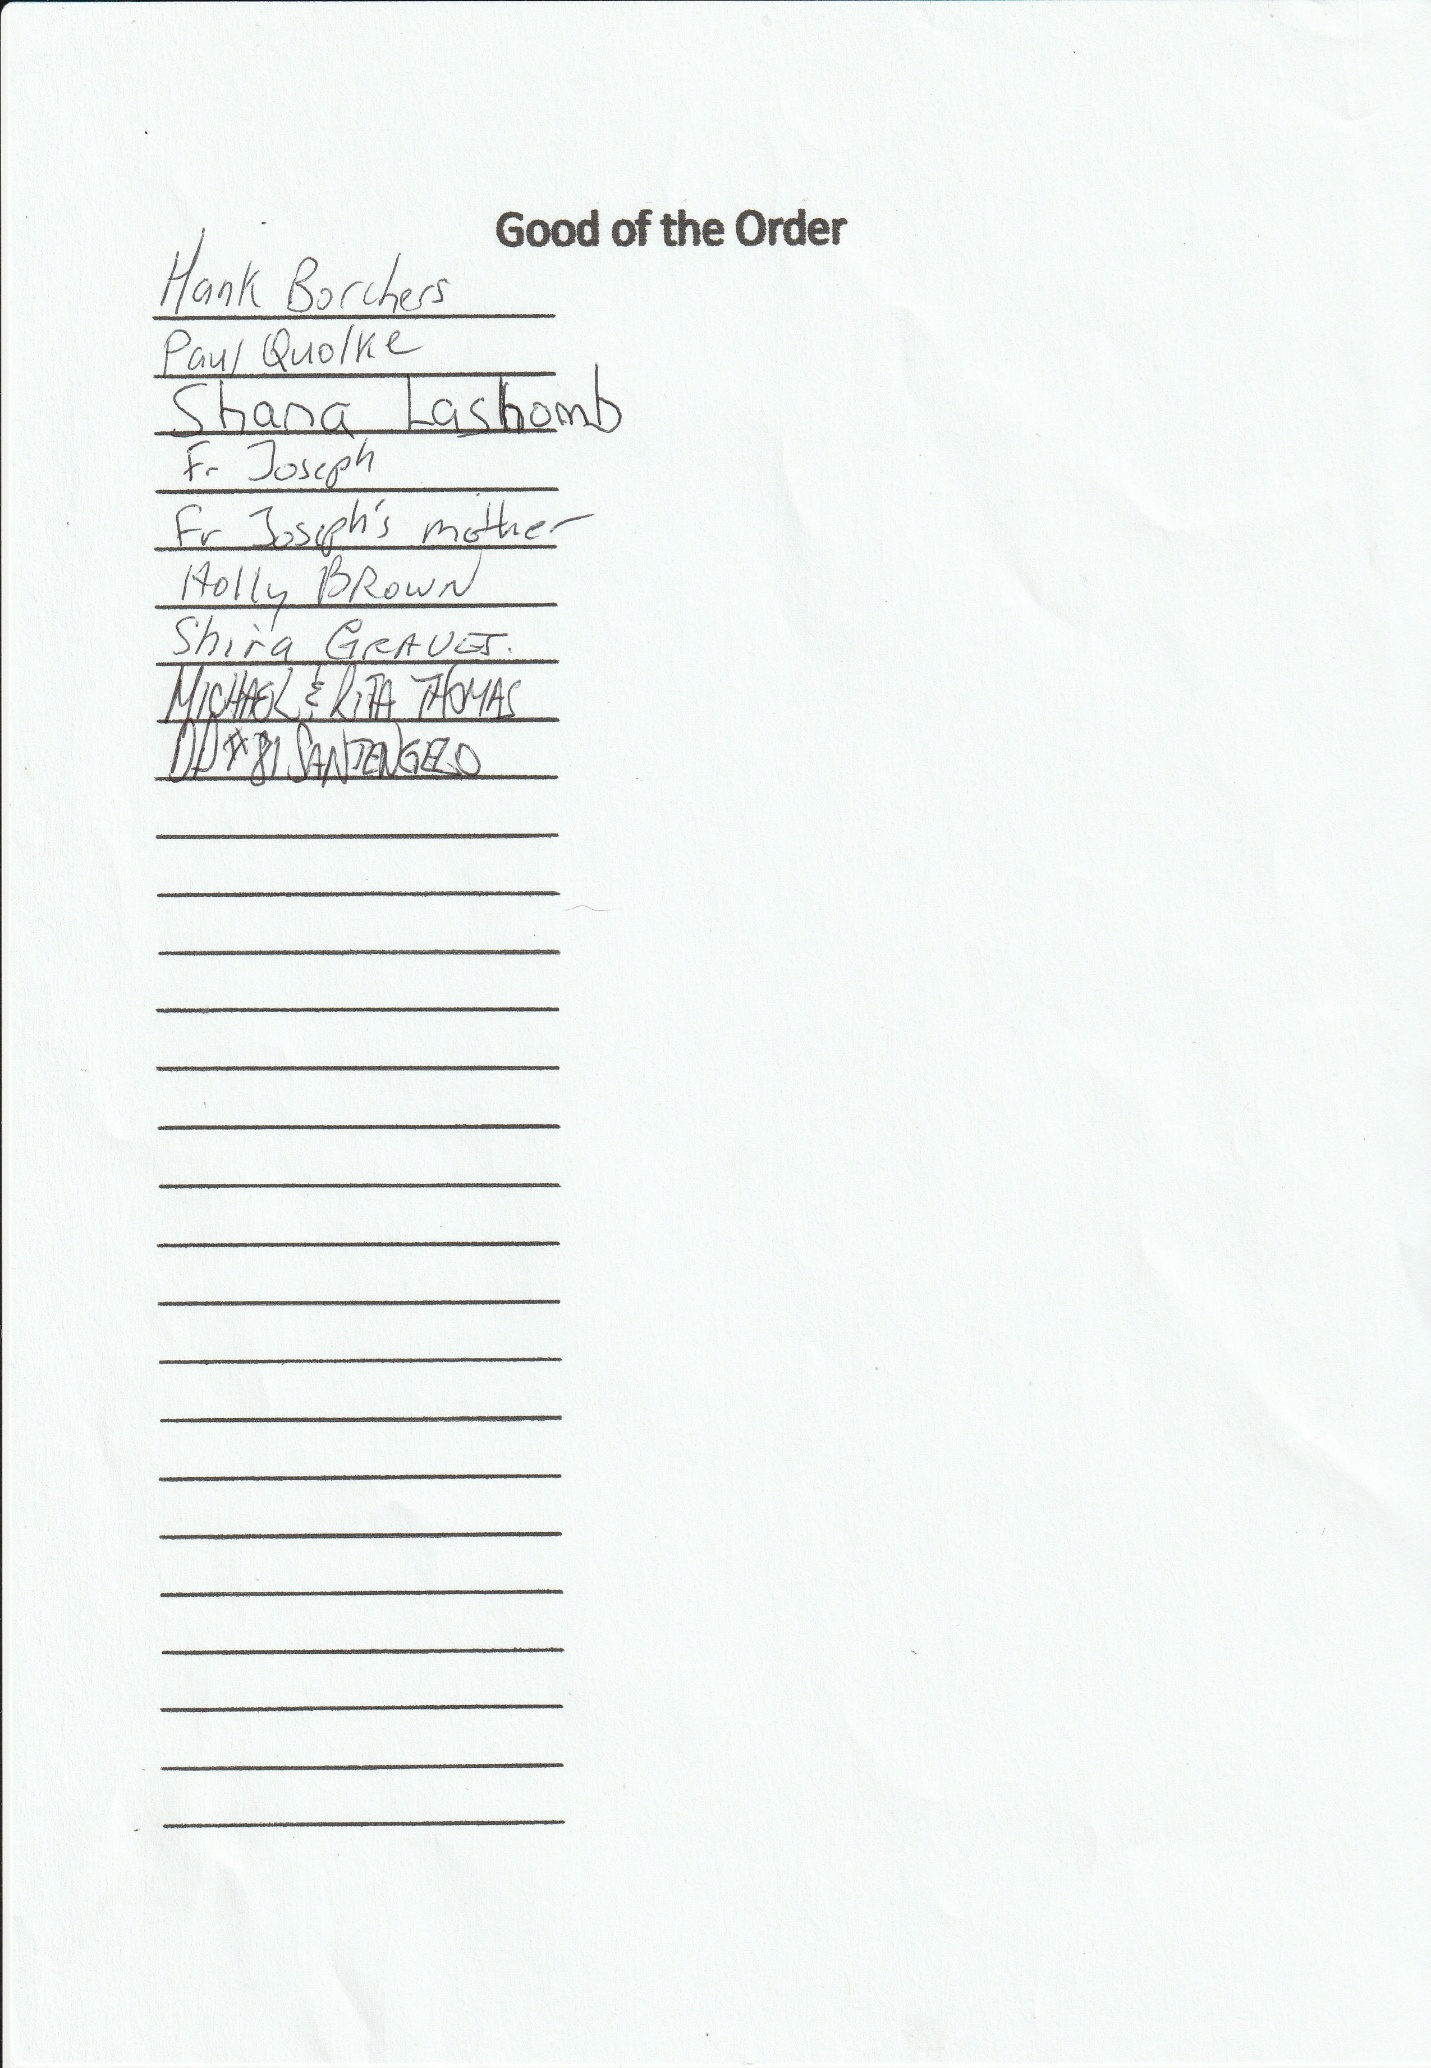 Good of the Order
Hank Borchers
Paul Quolke
Shana Lashomb
Fr Joseph
Fr Joseph's mother
Holly BROWN
Shira GRAVES.
MICHAEL & RITA THOMAS
DD #81 SANTENGELO